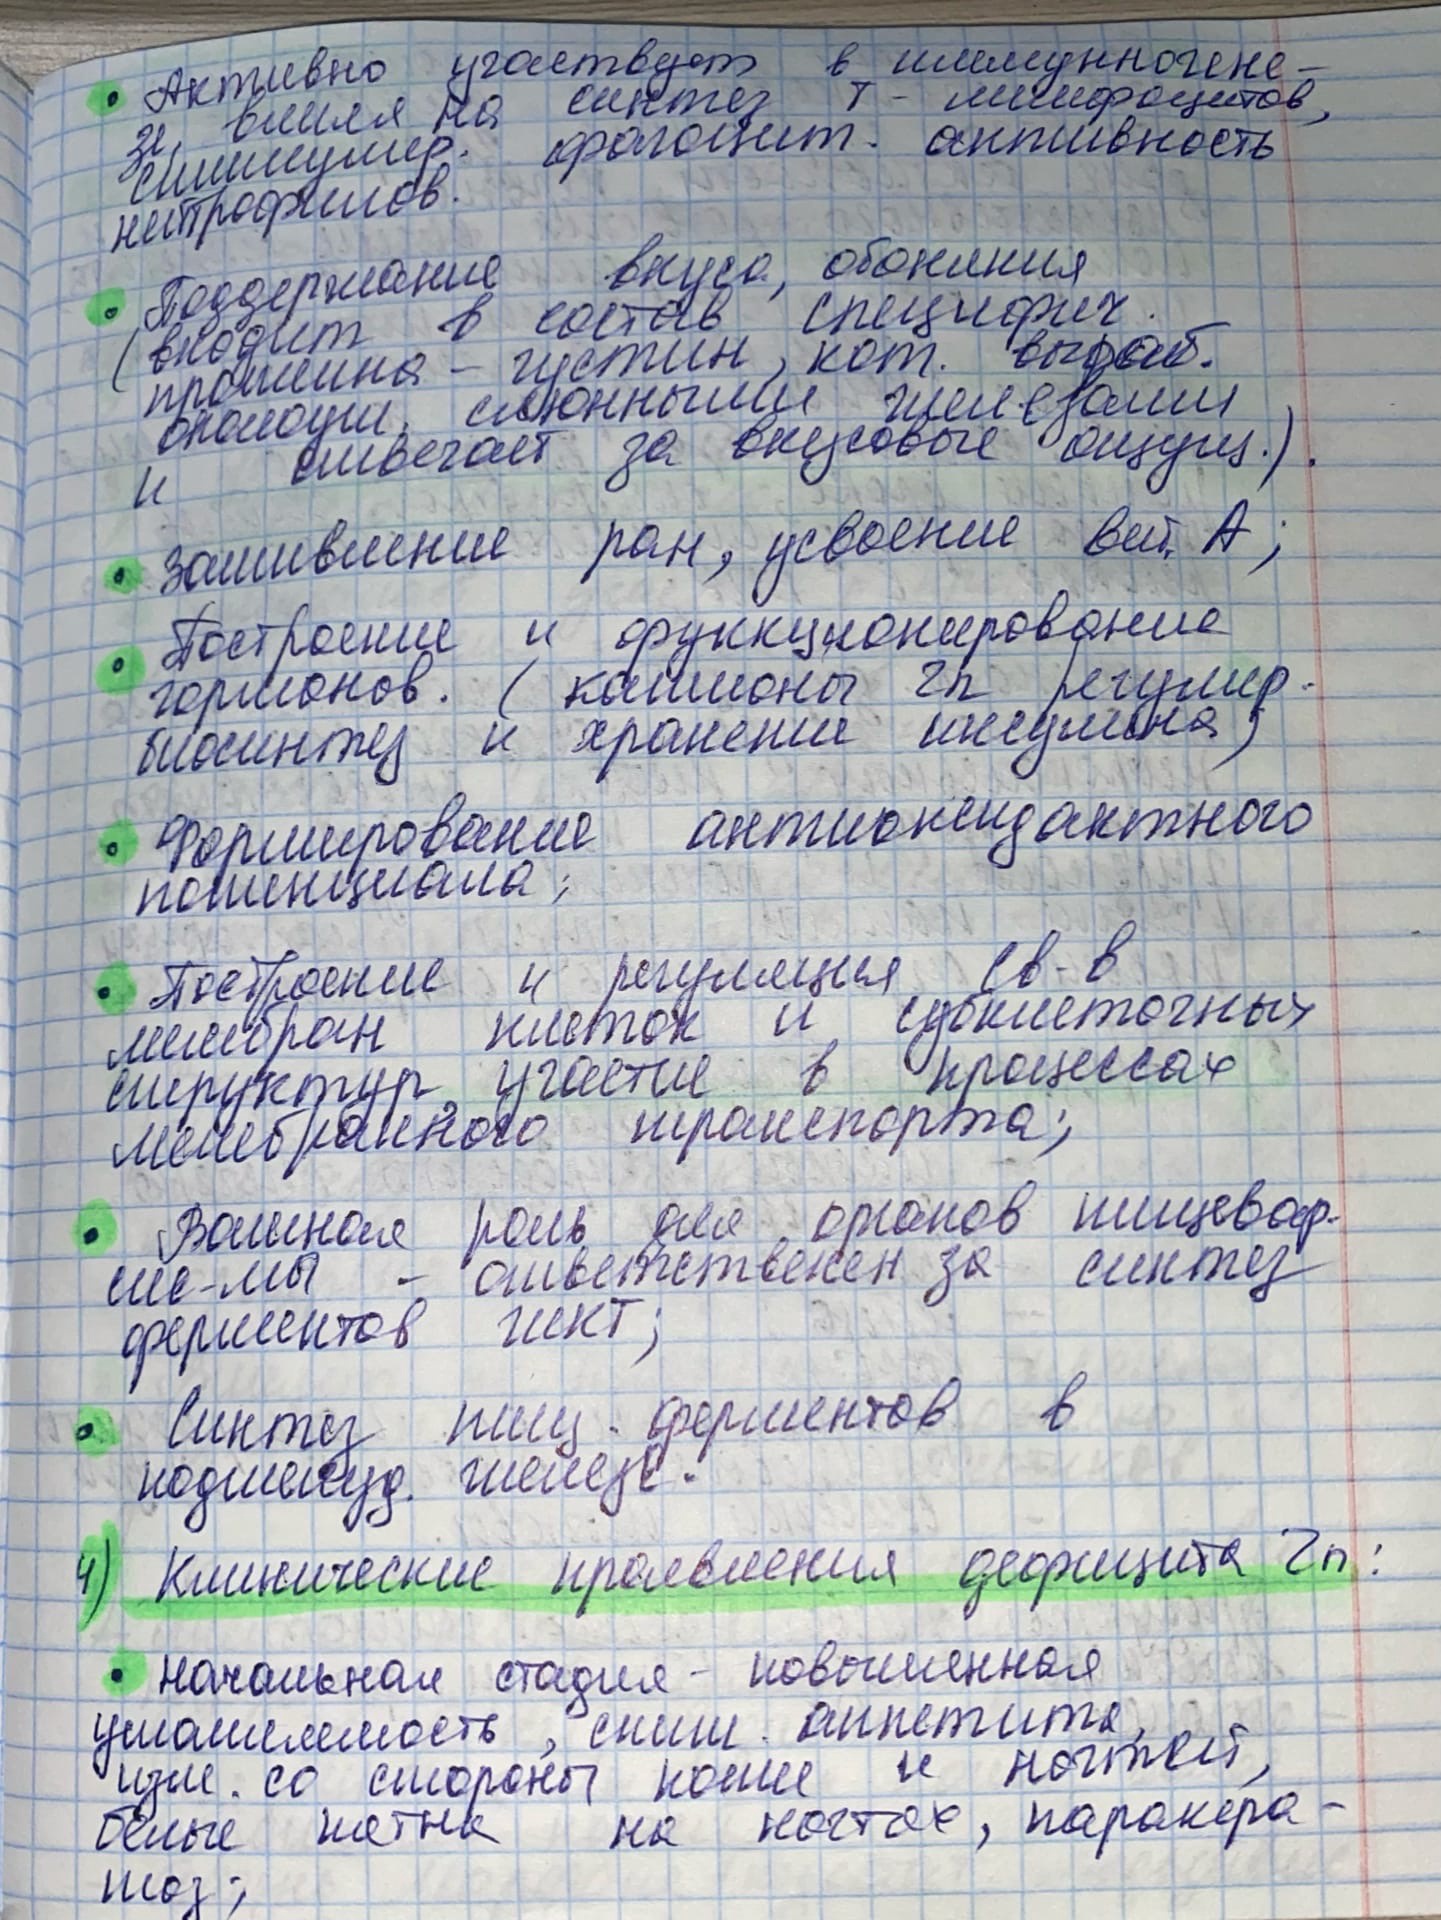 • Активно участвует в иммунногене-
зе, влияя на синтез Т-лимфоцитов,
стимулир. фагоцит. активность
нейтрофилов.
• Поддержание вкуса, обоняния
(входит в состав специфич.
протеина - густин, кот. выраб.
околоуш. слюнными железами
и отвечает за вкусовые ощущ.).
• Заживление ран, усвоение вит. А;
• Построение и функционирование
гормонов. (катионы Zn регулир.
биосинтез и хранение инсулина)
• Формирование антиоксидантного
потенциала;
• Построение и регуляция св-в
мембран клеток и субклеточных
структур, участие в процессах
мембранного транспорта;
• Важная роль для органов пищевар.
сис-мы - ответственен за синтез
ферментов ЖКТ;
• Синтез пищ. ферментов в
поджелуд. железе.
4) Клинические проявления дефицита Zn:
• Начальная стадия - повышенная
утомляемость, сниж. аппетита,
изм. со стороны кожи и ногтей,
белые пятна на ногтях, паракера-
тоз;